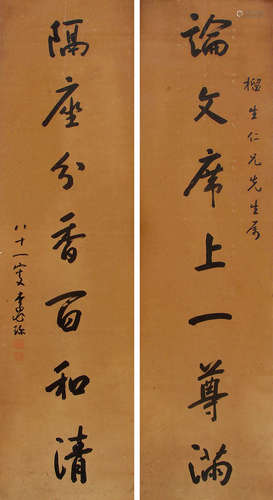 論文席上一尊滿
榴生仁兄先生屬
隔座分香百和清
八十一叟